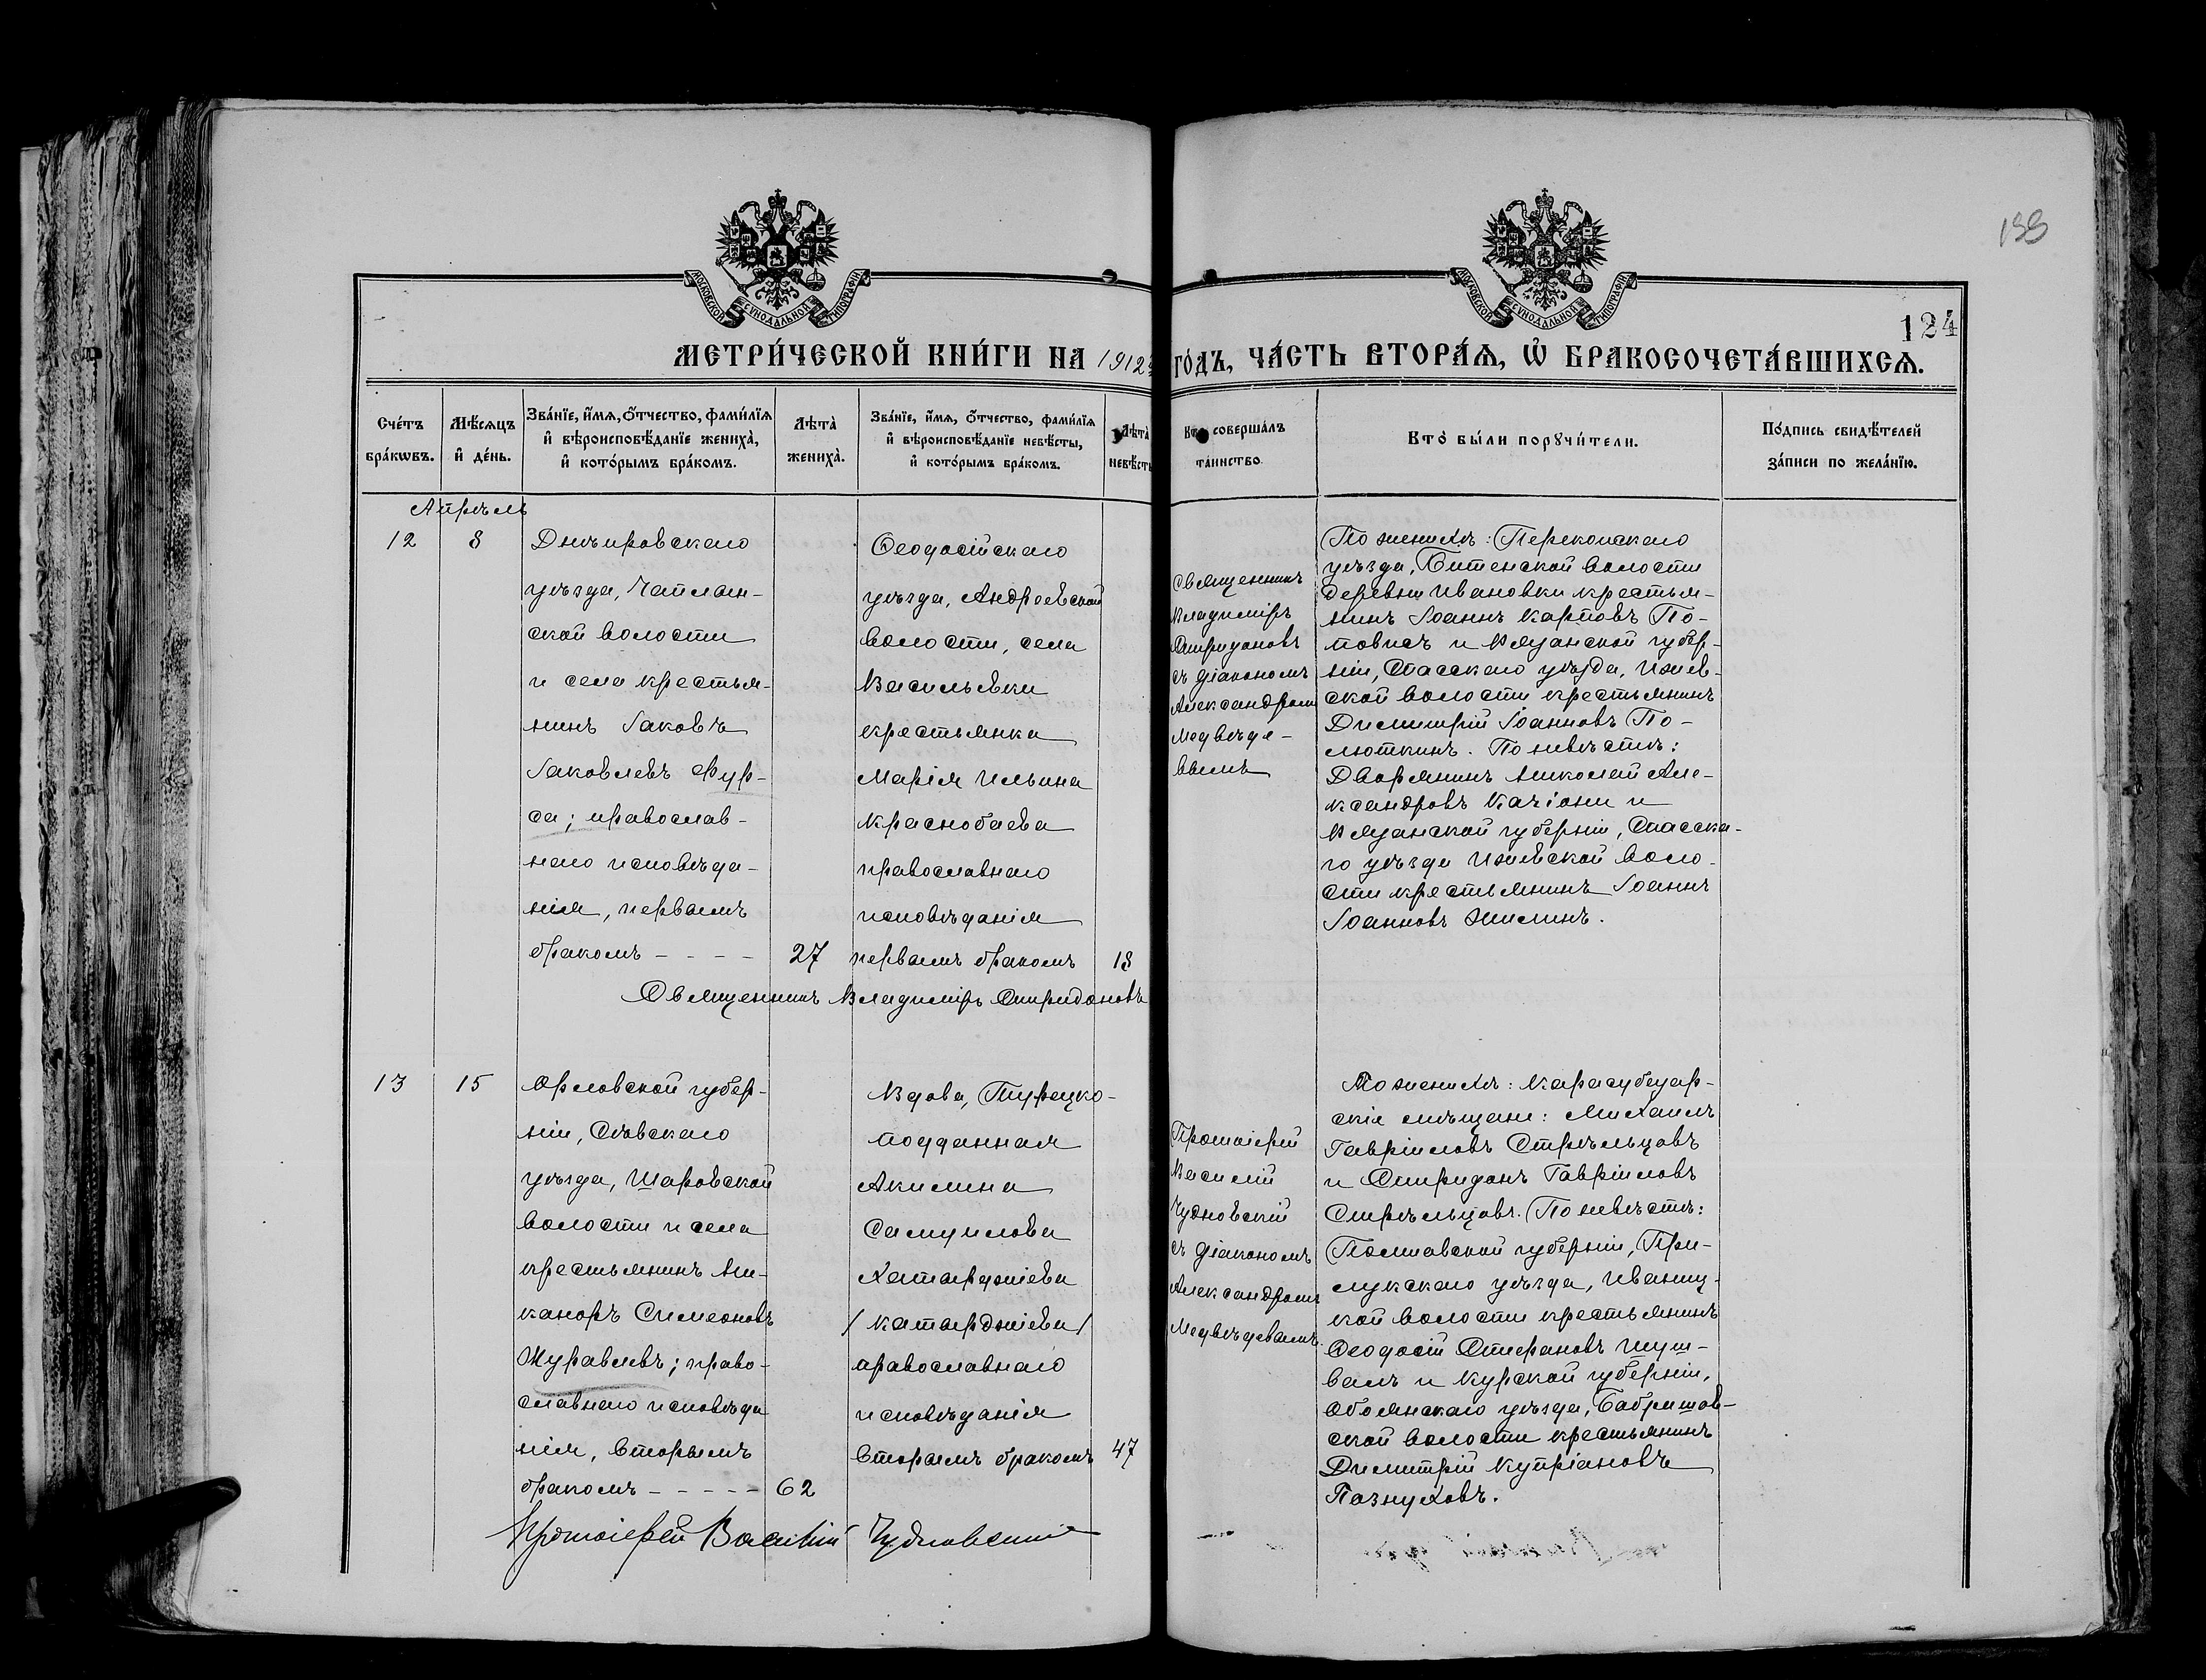 133
124
МОСКОВСКОЙ СѴНОДАЛЬНОЙ ТИПОГРАФІИ
МОСКОВСКОЙ СѴНОДАЛЬНОЙ ТИПОГРАФІИ
МЕТРИ́ЧЕСКОЙ КНИ́ГИ НА 1912й ГО́ДЪ, ЧА́СТЬ ВТОРА́Я, Ѡ҆ БРАКОСОЧЕТА́ВШИХСѦ.
Сче́тъ
бра́кѡвъ.
Мѣ́сѧцъ
и҆ де́нь.
Зва́нїе, и҆́мѧ, ѻ҆́тчество, фами́лїѧ
и҆ вѣроисповѣ́данїе жениха̀,
и҆ кото́рымъ бра́комъ.
Лѣта̀
жениха̀.
Зва́нїе, и҆́мѧ, ѻ҆́тчество, фами́лїѧ
и҆ вѣроисповѣ́данїе невѣ́сты,
и҆ кото́рымъ бра́комъ.
Лѣта̀
невѣ́сты
Кто̀ соверша́лъ
та́инство.
Кто̀ бы́ли порꙋчи́тели.
По́дпись свидѣ́телей
за́писи по жела́нїю.
Апрѣль
12
8
Днѣпровскаго
уѣзда, Чаплин-
ской волости
и села крестья-
нинъ Іаковъ
Іаковлевъ Фур-
са; православ-
наго исповѣда-
нія, первымъ
бракомъ - - - -
27
Ѳеодосійскаго
уѣзда, Андреевской
волости, села
Васильевки
крестьянка
Марія Ильина
Краснобаева
православнаго
исповѣданія
первымъ бракомъ
18
Священникъ
Владиміръ
Спиридоновъ
съ діакономъ
Александромъ
Медвѣде-
вымъ
По женихѣ: Перекопскаго
уѣзда, Битенской волости
деревни Ивановки крестья-
нинъ Іоаннъ Карповъ По-
повичъ и Рязанской губер-
ніи, Спасскаго уѣзда, Ижев-
ской волости крестьянинъ
Димитрій Іоанновъ По-
люткинъ. По невѣстѣ:
Дворянинъ Николай Але-
ксандровъ Качіони и
Рязанской губерніи, Спасска-
го уѣзда Ижевской воло-
сти крестьянинъ Іоаннъ
Іоанновъ Жилинъ.
Священникъ Владиміръ Спиридоновъ
13
15
Орловской губер-
ніи, Сѣвскаго
уѣзда, Шаровской
волости и села
крестьянинъ Ни-
каноръ Симеоновъ
Журавлевъ; право-
славнаго исповѣда
нія, вторымъ
бракомъ - - - - -
62
Вдова, Турецко-
подданная
Акилина
Самуилова
Хатарджіева
/Катарджіева/
православнаго
исповѣданія
вторымъ бракомъ
47
Протоіерей
Василій
Чудновскій
съ діакономъ
Александромъ
Медвѣдевымъ.
По женихѣ: Карасубазар-
скіе мѣщане: Михаилъ
Гавріиловъ Стрѣльцовъ
и Спиридонъ Гавріиловъ
Стрѣльцовъ. По невѣстѣ:
Полтавской губерніи, При-
лукскаго уѣзда, Иваниц-
кой волости крестьянинъ
Ѳеодосій Стефановъ Шуш-
валъ и Курской губерніи,
Обоянскаго уѣзда, Бобрышов-
ской волости крестьянинъ
Димитрій Купріановъ
Позняховъ.
Протоіерей Василій Чудновскій